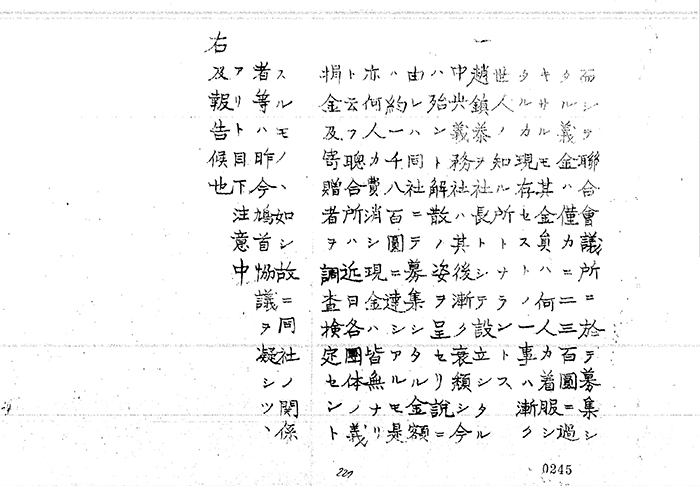 一
而シテ聯合會議所ニ於テ募集シ
タル義金ハ僅カニ二三百圓ニ過
キサルモ其金員ハ何人カ着服シ
タルカ現存セストノ一事ハ漸ク
世人ノ知ル所トナラントス
趙鎮泰ヲ社長トシテ設立シタル
中央義務社ハ其後漸ク衰頽シ今
ハ殆ント解散ノ姿ヲ呈セリ説ニ
由レハ同社ニテ募集シタル金額
ハ約一千八百圓ニ達シアルモ是
亦何人カ費消シ現金ハ皆無ナリ
ト云フ聰合所ハ近日各團体ノ義
捐金及寄贈者ヲ調査檢定セント
スルモノヽ如シ故ニ同社ノ関係
者等ハ昨今鳩首協議ヲ凝シツヽ
アリト目下注意中
右及報告候也
221
0245